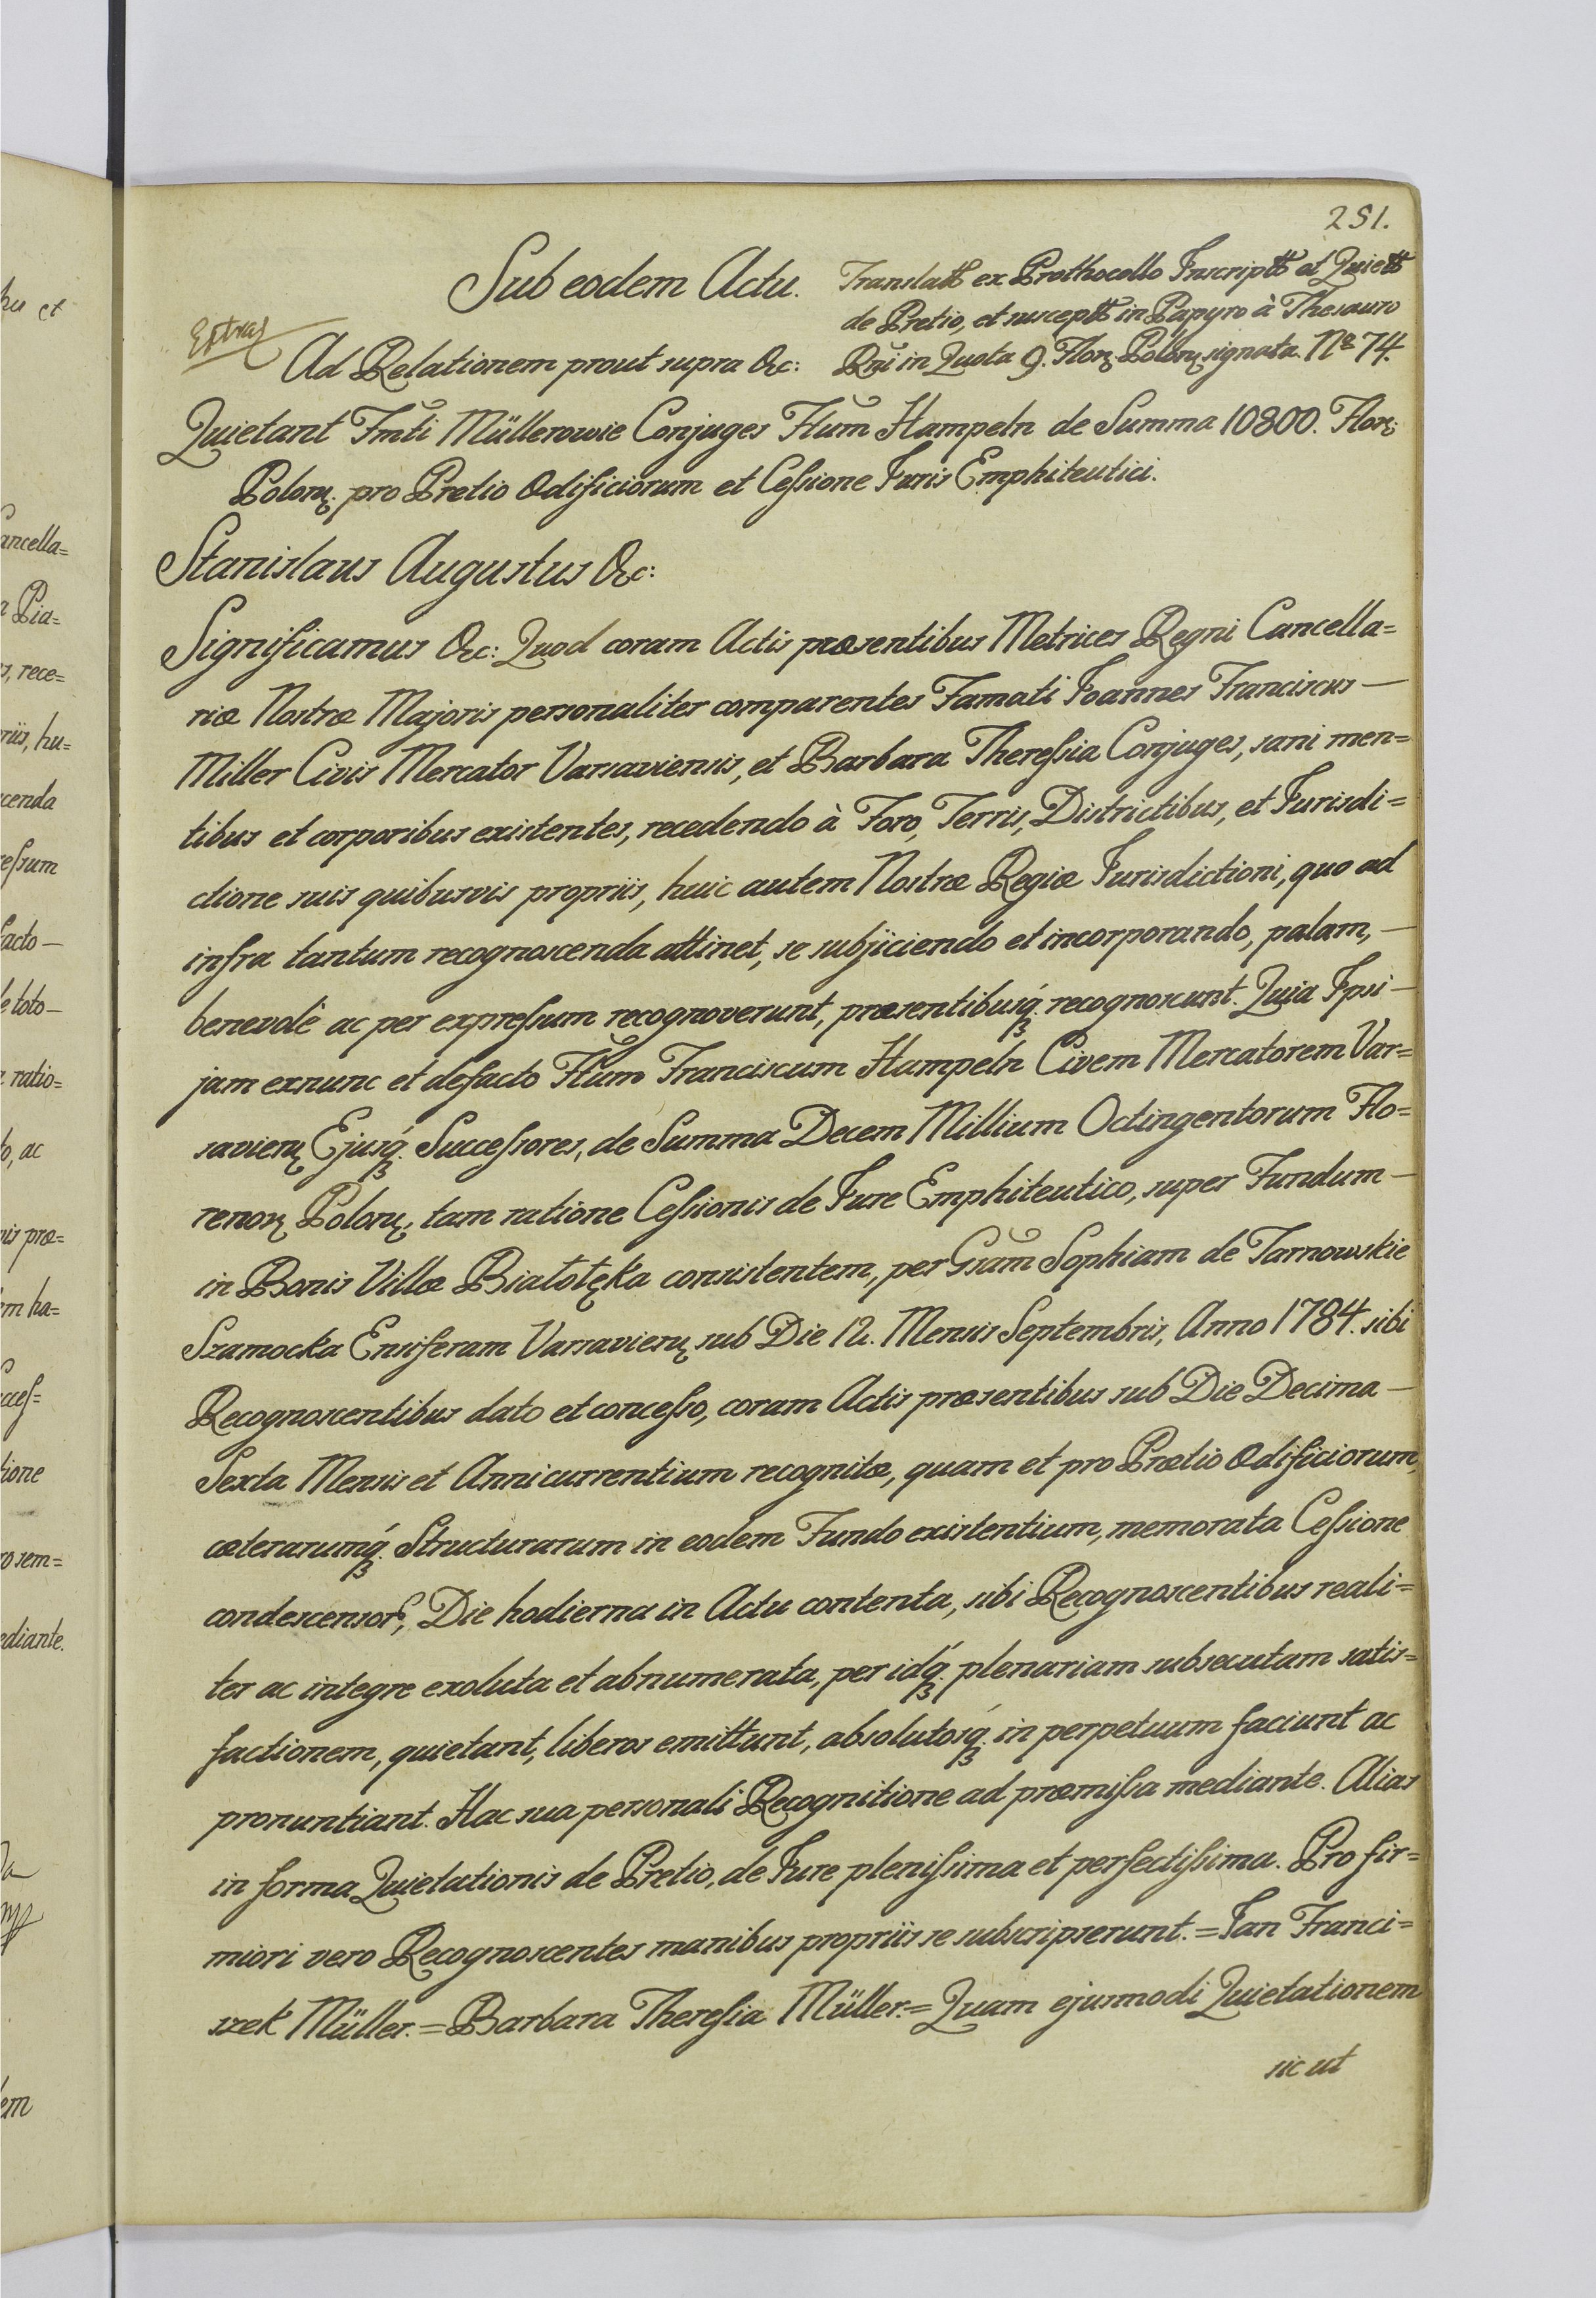 251.
Sub eodem Actu.
Translatt ex Prothocollo Inscriptt et Quiett
de Pretio, et susceptt in Papyro à Thesauro
Rni in Quota 9. Flor Polon signata. No 74.
Extrad
Ad Relationem prout supra &c:
Quietant Fmti Müllerowie Conjuges Fttum Hampeln de Summa 10800. Flor:
Polon. pro Pretio Ædificiorum et Cessione Juris Emphiteutici.
Stanislaus Augustus &c:
Significamus &c: Quod coram Actis præsentibus Metrices Regni Cancella=
riæ Nostræ Majoris personaliter comparentes Famati Joannes Franciscus —
Miller Civis Mercator Varsaviensis, et Barbara Theressia Conjuges, sani men=
tibus et corporibus existentes, recedendo à Foro, Terris, Districtibus, et Jurisdi=
ctione suis quibusvis propriis, huic autem Nostræ Regiæ Jurisdictioni, quo ad
infra tantum recognoscenda attinet, se subjiciendo et incorporando, palam, —
benevolè ac per expressum recognoverunt, præsentibusq́. recognoscunt. Quia Ipsi —
jam exnunc et defacto Fttum Franciscum Hampeln Civem Mercatorem Var=
savien Ejusq́. Successores, de Summa Decem Millium Octingentorum Flo=
renor Polon, tam ratione Cessionis de Jure Emphiteutico, super Fundum —
in Bonis Villæ Białołęka consistentem, per Gsam Sophiam de Tarnowskie
Szamocka Ensiferam Varsavien sub Die 12. Mensis Septembris, Anno 1784. sibi
Recognoscentibus dato et concesso, coram Actis præsentibus sub Die Decima —
Sexta Mensis et Anni currentium recognitæ, quam et pro Prætio Ædificiorum,
cæterarumq́. Structurarum in eodem Fundo existentium, memorata Cessione
condescensor, Die hodierna in Actu contenta, sibi Recognoscentibus reali=
ter ac integre exoluta et abnumerata, per idq́. plenariam subsecutam satis=
factionem, quietant, liberos emittunt, absolutosq́. in perpetuum faciunt ac
pronuntiant. Hac sua personali Recognitione ad præmissa mediante. Alias
in forma Quietationis de Pretio, de Jure plenissima et perfectissima. Pro fir=
miori vero Recognoscentes manibus propriis se subscripserunt. = Jan Franci=
szek Müller. = Barbara Theresia Müller. = Quam ejusmodi Quietationem
sic ut